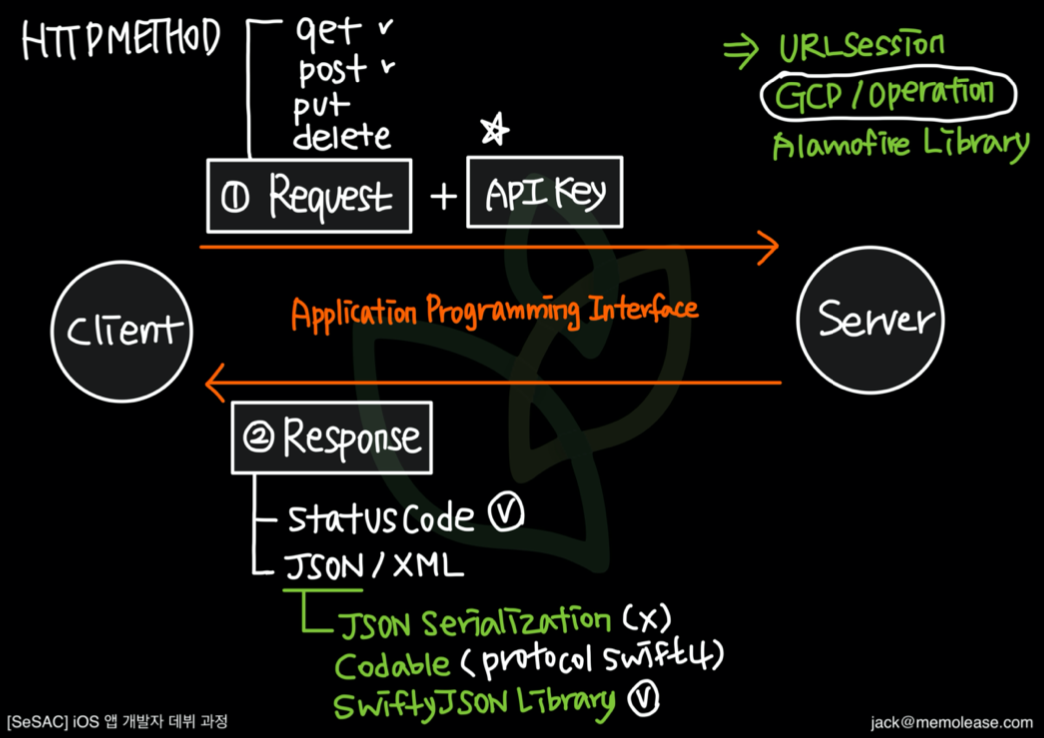 HTTPMETHOD
get v
post v
put
delete
⇒ URLSession
GCP / Operation
Alamofire Library
☆
① Request + API Key
Client
Application Programming Interface
Server
② Response
Status Code Ⓥ
JSON / XML
JSON Serialization (X)
Codable (protocol Swift4)
SwiftyJSON Library Ⓥ
[SeSAC] iOS 앱 개발자 데뷔 과정
jack@memolease.com